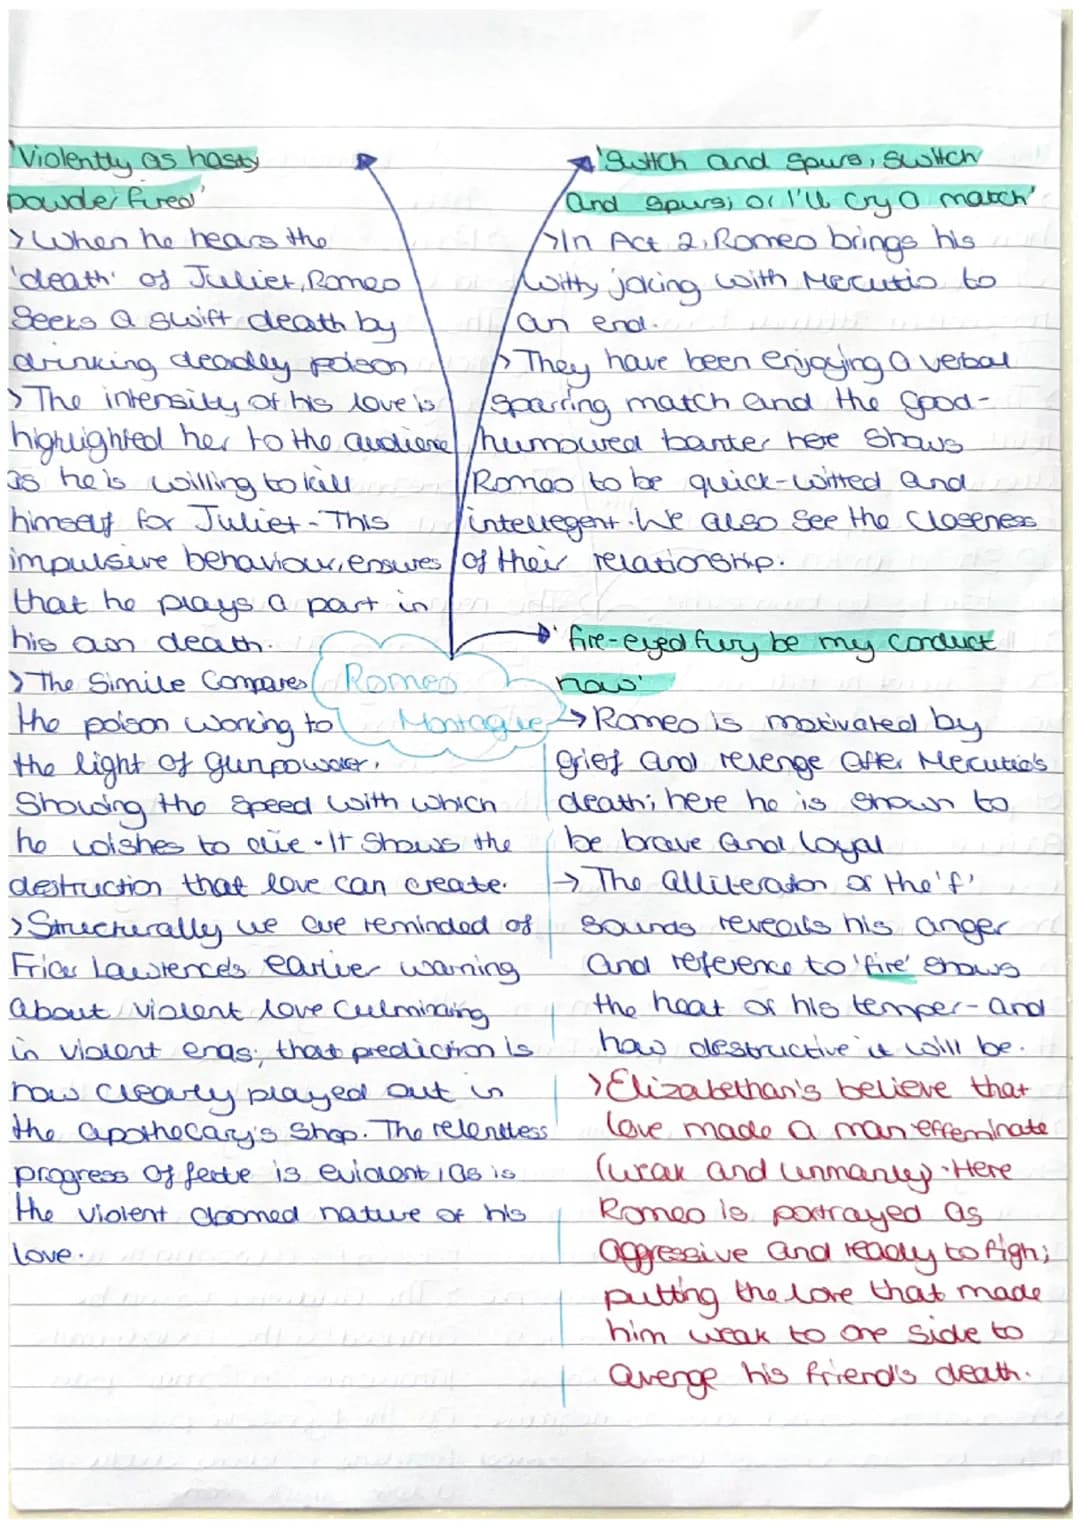 'Violently as hasty
powder fired'
>When he hears the
'death' of Juliet, Romeo
Seeks a swift death by
drinking deadly poison
>The intensity of his love is
highlighted her to the audience
as he is willing to kill
himself for Juliet - This
impulsive behaviour, ensures
that he plays a part in
his own death.
>The Simile Compares
the poison working to
the light of gunpowder,
Showing the speed with which
he wishes to die. It shows the
destruction that love can create.
>Structurally we are reminded of
Friar Lawrence's earlier warning
about violent love culminating
in violent ends; that prediction is
now clearly played out in
the apothecary's Shop. The relentless
progress of fate is evident, as is
the violent doomed nature of his
love.
Romeo
Montague
'Switch and spurs, switch
and spurs; or I'll cry a match'
>In Act 2, Romeo brings his
witty joking with Mercutio to
an end.
>They have been enjoying a verbal
sparring match and the good-
humoured banter here shows
Romeo to be quick-witted and
intellegent. We also see the closeness
of their relationship.
'fire-eyed fury be my conduct
now'
→Romeo is motivated by
grief and revenge after Mercutio's
death; here he is shown to
be brave and loyal
→The alliteration of the 'f'
sounds reveals his anger
and reference to 'fire' shows
the heat of his temper - and
how destructive it will be.
>Elizabethan's believe that
love made a man effeminate
(weak and unmanly). Here
Romeo is portrayed as
aggressive and ready to figh;
putting the love that made
him weak to one side to
avenge his friend's death.